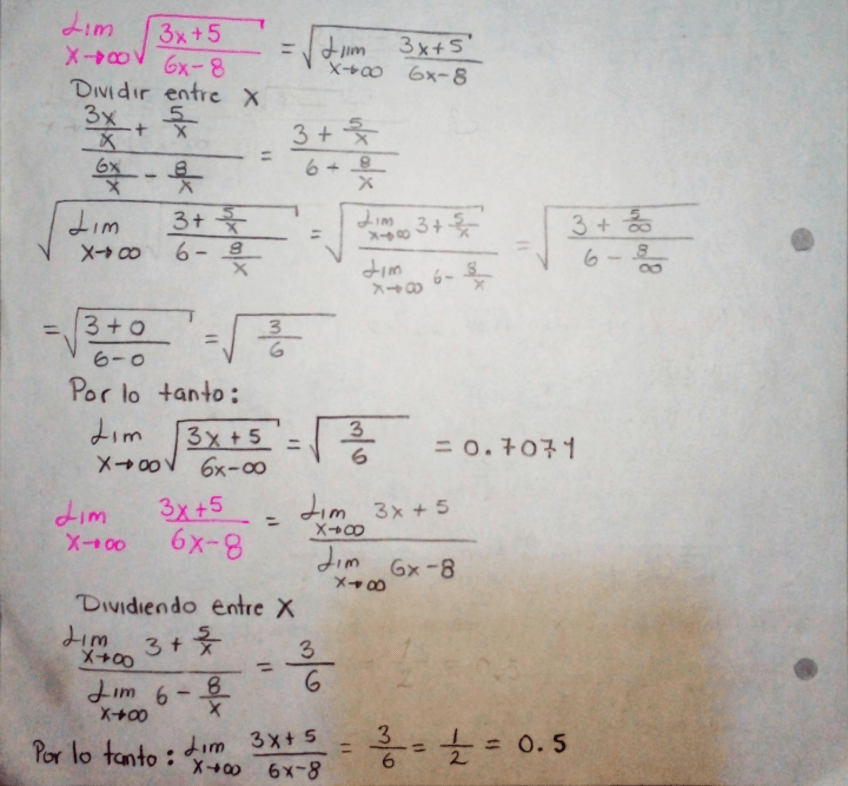 Lim x→∞ √(3x+5 / 6x-8) = √(Lim x→∞ 3x+5 / 6x-8)
Dividir entre x
(3x/x + 5/x) / (6x/x - 8/x) = (3 + 5/x) / (6 + 8/x)
√(Lim x→∞ (3 + 5/x) / (6 - 8/x)) = √(Lim x→∞ 3 + 5/x / Lim x→∞ 6 - 8/x) = √((3 + 5/∞) / (6 - 8/∞))
= √(3+0 / 6-0) = √(3/6)
Por lo tanto:
Lim x→∞ √(3x+5 / 6x-∞) = √(3/6) = 0.7071
Lim x→∞ 3x+5 / 6x-8 = Lim x→∞ 3x+5 / Lim x→∞ 6x-8
Dividiendo entre x
Lim x→∞ 3 + 5/x / Lim x→∞ 6 - 8/x = 3/6 = 1/2 = 0.5
Por lo tanto: Lim x→∞ 3x+5 / 6x-8 = 3/6 = 1/2 = 0.5